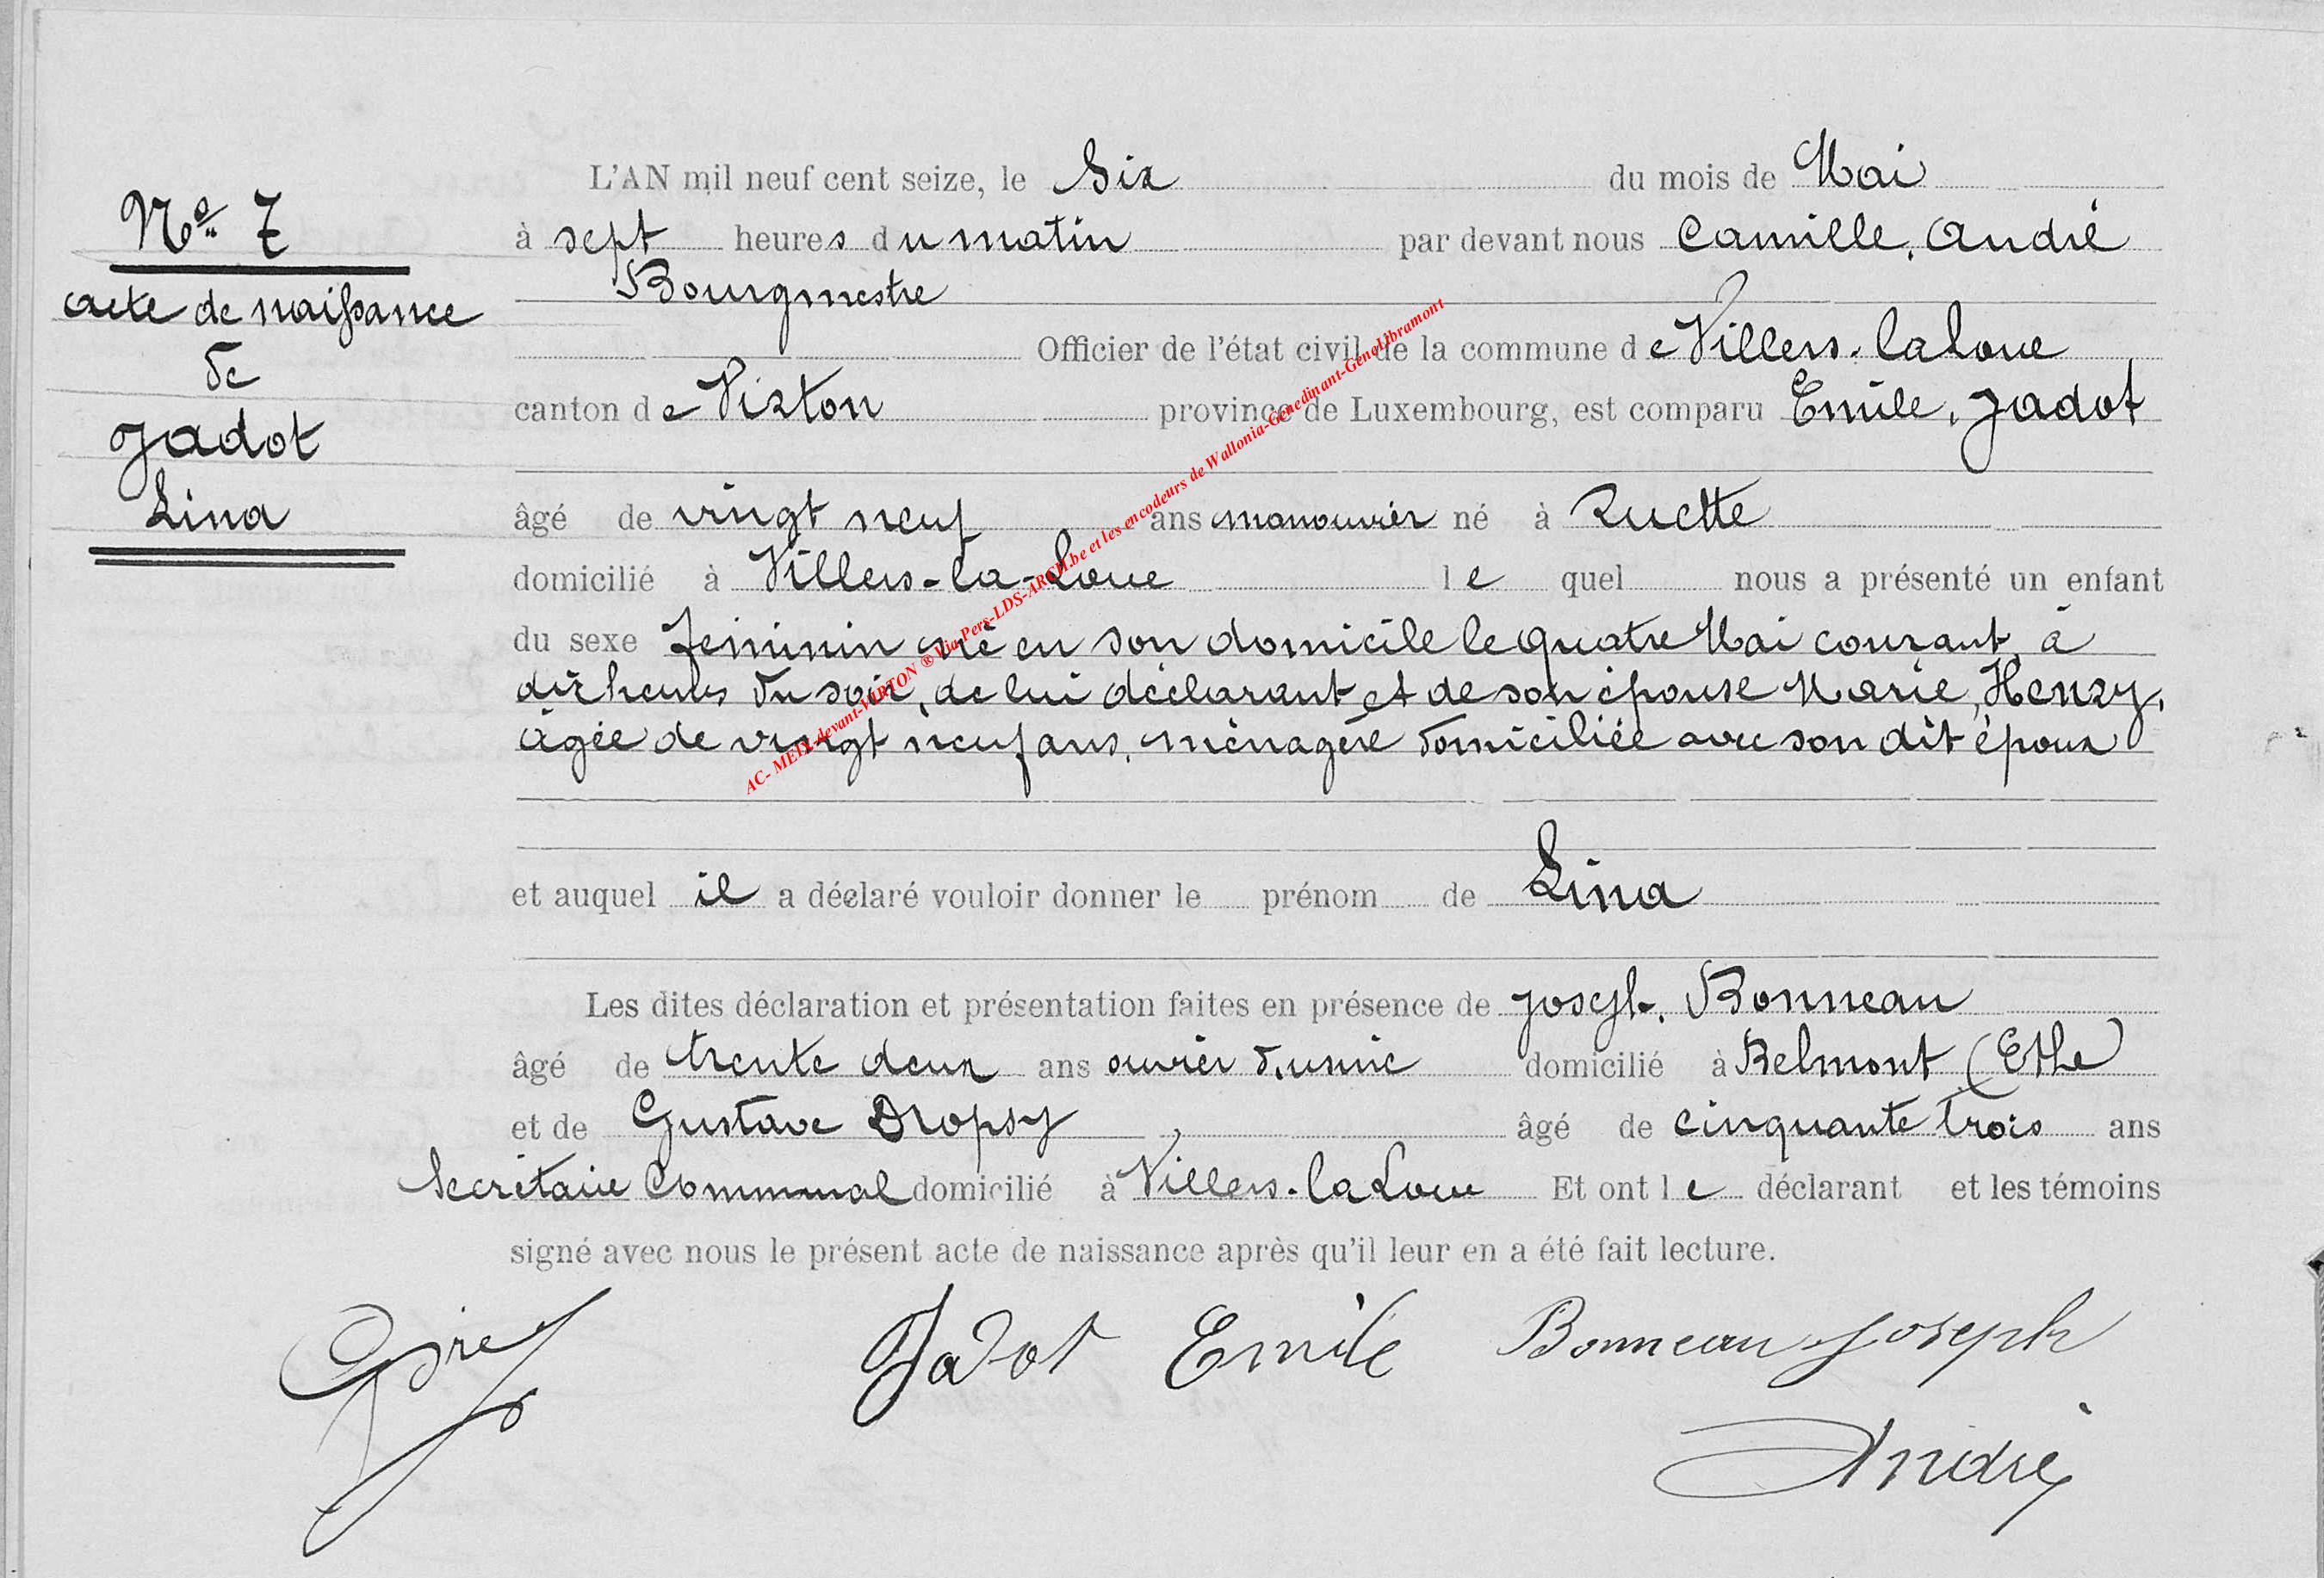 N° 7
acte de naissance
de
Jadot
Lina
L'AN mil neuf cent seize, le Six du mois de Mai
à sept heures du matin par devant nous Camille, André
Bourgmestre
Officier de l'état civil de la commune de Villers-la Loue
canton de Virton province de Luxembourg, est comparu Emile, Jadot
âgé de vingt neuf ans manouvrier né à Ruette
domicilié à Villers-la-Loue le quel nous a présenté un enfant
du sexe féminin né en son domicile le quatre Mai courant, à
dix heures du soir, de lui déclarant et de son épouse Marie, Henry,
âgée de vingt neuf ans, ménagère domiciliée avec son dit époux
et auquel il a déclaré vouloir donner le prénom de Lina
Les dites déclaration et présentation faites en présence de Joseph, Bonneau
âgé de trente deux ans ouvrier d'usine domicilié à Belmont (Ethe)
et de Gustave Dropsy, âgé de cinquante trois ans
Secrétaire Communal domicilié à Villers-la Loue Et ont le déclarant et les témoins
signé avec nous le présent acte de naissance après qu'il leur en a été fait lecture.
Jadot Emile Bonneau Joseph
André
AC- MEIX-devant-VIRTON ® Via Pers-LDS-ARCH.be et les encodeurs de Wallonia-Genedinant-GeneLibramont